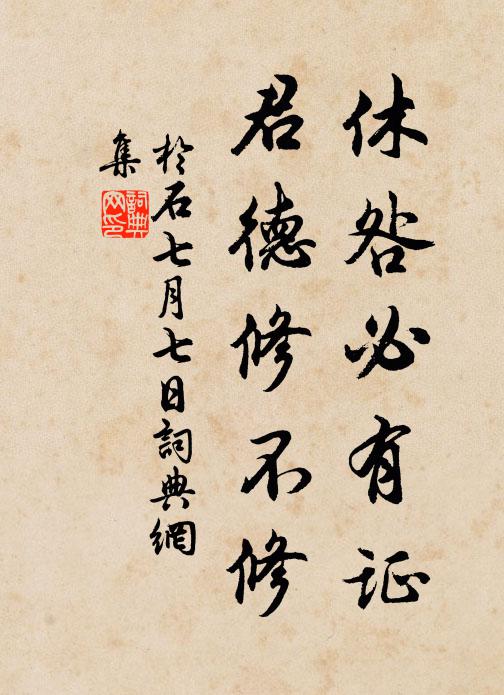 休咎必有证
君德修不修
於石七月七日詞典網
集
詞典
网印